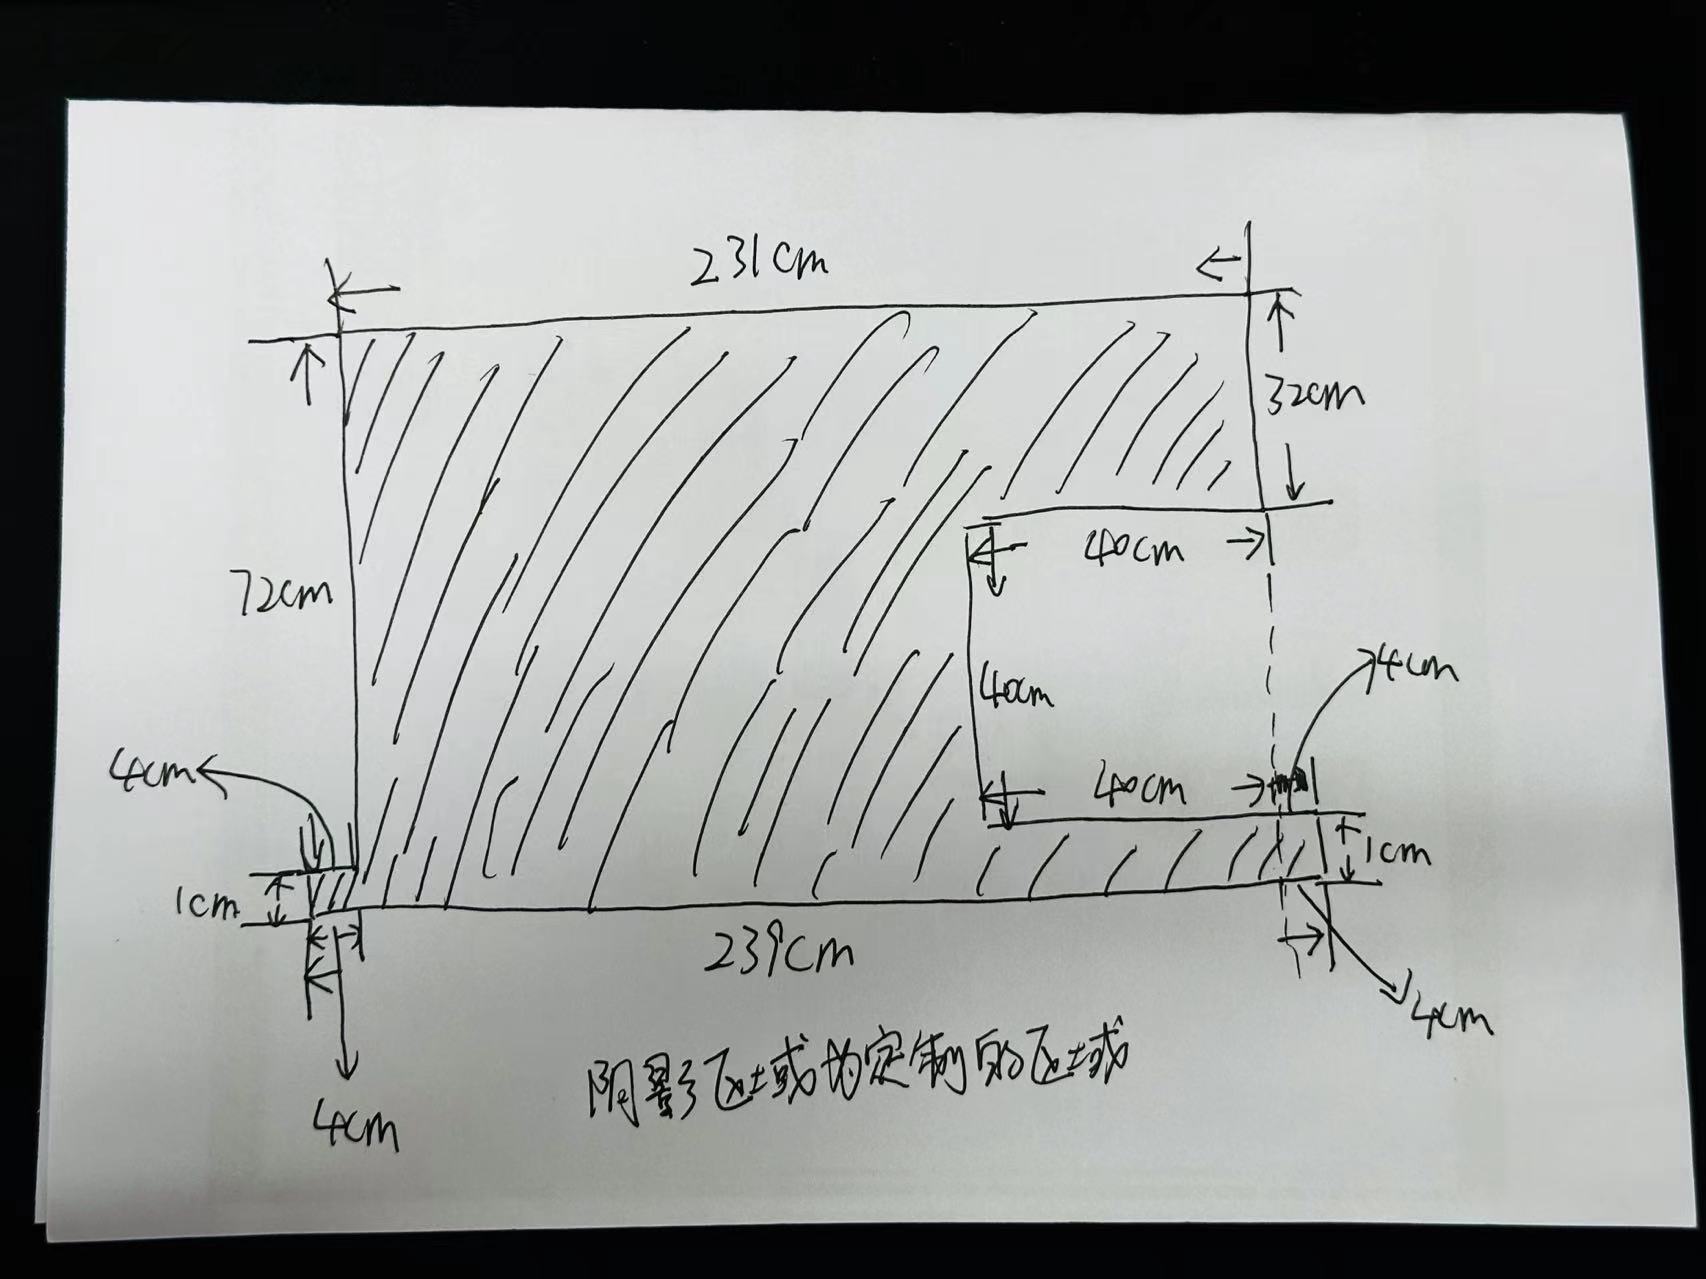 231cm
32cm
40cm
72cm
40cm
4cm
4cm
40cm
1cm
1cm
239cm
4cm
4cm
阴影区域为定制的区域